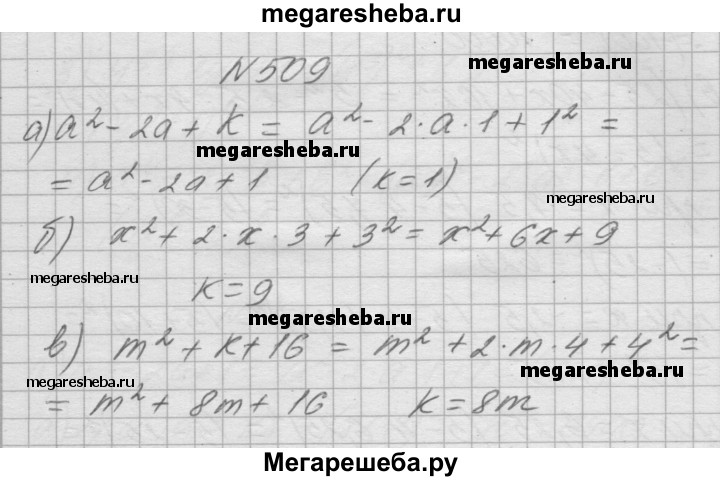 megaresheba.ru
N 509
megaresheba.ru
а) a² - 2a + k = a² - 2·a·1 + 1² =
megaresheba.ru
megaresheba.ru
= a² - 2a + 1 (k=1)
megaresheba.ru
б) x² + 2·x·3 + 3² = x² + 6x + 9
megaresheba.ru
k=9
megaresheba.ru
в) m² + k + 16 = m² + 2·m·4 + 4² =
megaresheba.ru
megaresheba.ru
= m² + 8m + 16 k = 8m
Мегарешеба.ру